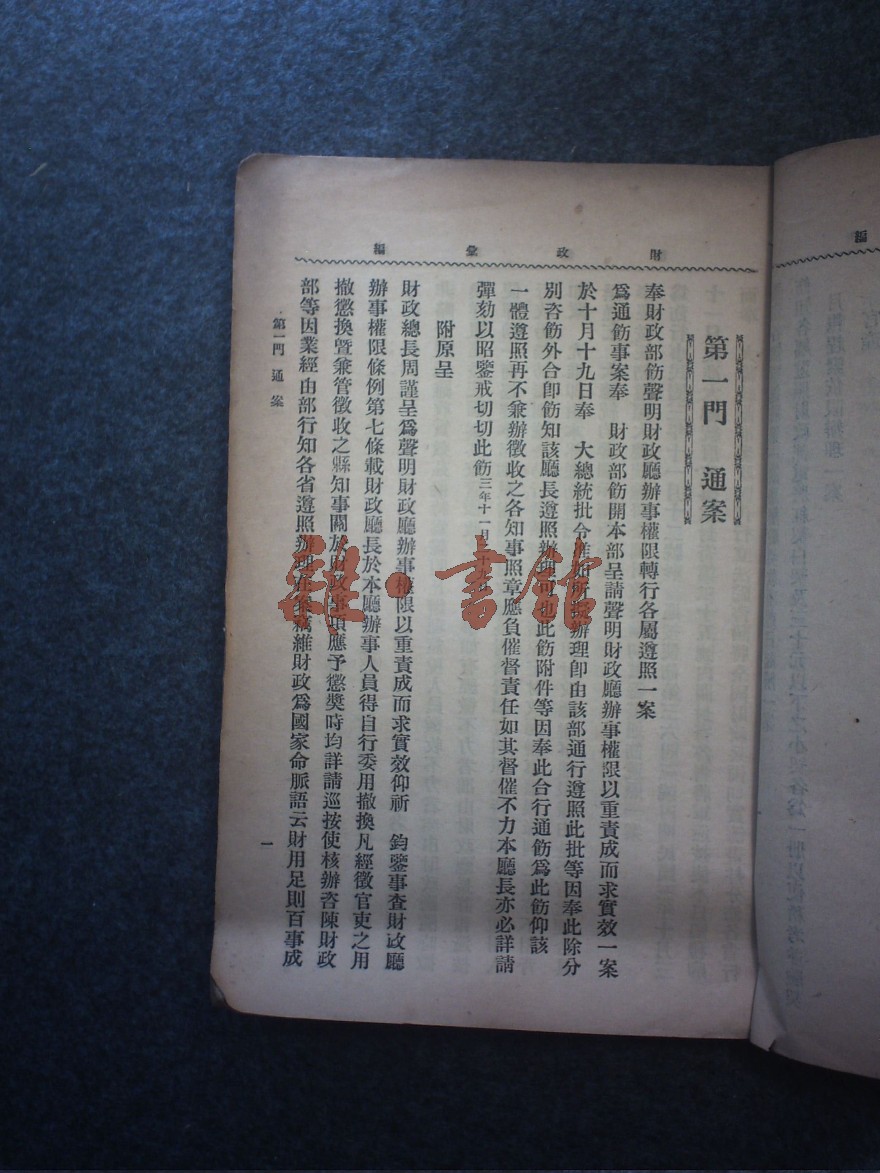 財政彙編
第一門 通案
奉財政部飭聲明財政廳辦事權限轉行各屬遵照一案
爲通飭事案奉 財政部飭開本部呈請聲明財政廳辦事權限以重責成而求實效一案
於十月十九日奉 大總統批令准如所擬辦理即由該部通行遵照此批等因奉此除分
別咨飭外合即飭知該廳長遵照辦理可也此飭附件等因奉此合行通飭爲此飭仰該
一體遵照再不兼辦徵收之各知事照章應負催督責任如其督催不力本廳長亦必詳請
彈劾以昭鑒戒切切此飭三年十一月
附原呈
財政總長周謹呈爲聲明財政廳辦事權限以重責成而求實效仰祈 鈞鑒事查財政廳
辦事權限條例第七條載財政廳長於本廳辦事人員得自行委用撤換凡經徵官吏之用
撤懲換暨兼管徵收之縣知事關於財政事項應予懲獎時均詳請巡按使核辦咨陳財政
部等因業經由部行知各省遵照辦理在案竊維財政爲國家命脈語云財用足則百事成
第一門 通案
一
編
雜·書館